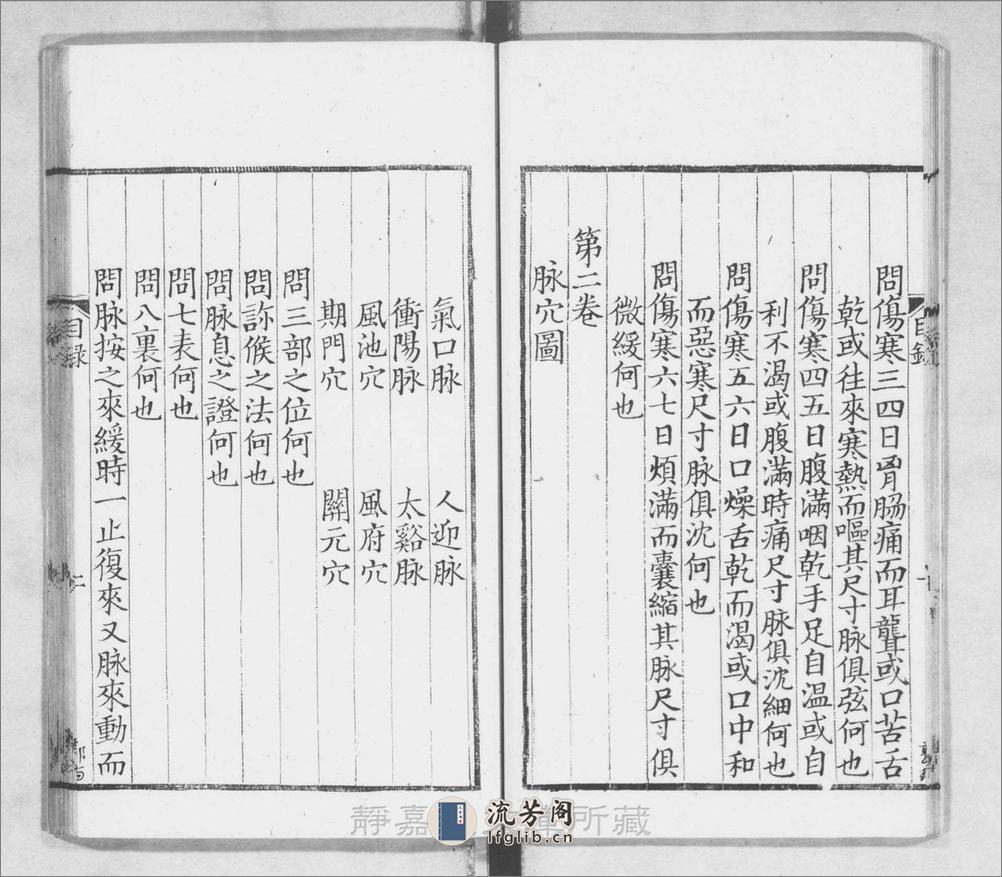 問傷寒三四日胷脇痛而耳聾或口苦舌
乾或往來寒熱而嘔其尺寸脉俱弦何也
問傷寒四五日腹滿咽乾手足自温或自
利不渴或腹滿時痛尺寸脉俱沈細何也
問傷寒五六日口燥舌乾而渴或口中和
而惡寒尺寸脉俱沈何也
問傷寒六七日煩滿而囊縮其脉尺寸俱
微緩何也
第二卷
脉穴圖
氣口脉 人迎脉
衝陽脉 太谿脉
風池穴 風府穴
期門穴 關元穴
問三部之位何也
問診候之法何也
問脉息之證何也
問七表何也
問八裏何也
問脉按之來緩時一止復來又脉來動而
目録
二
目録
靜嘉 所藏
流芳阁
lfglib.cn